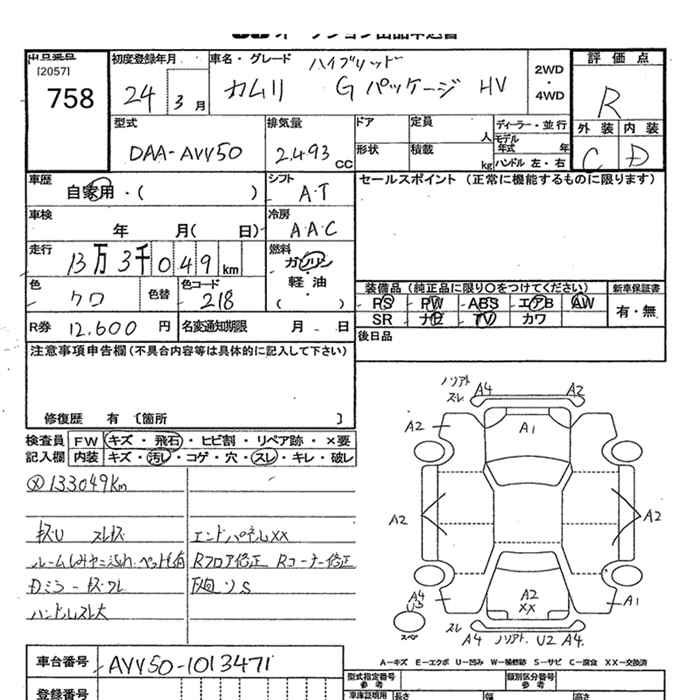 オークション出品申込書
出品番号
[2057]
758
初度登録年月
24 3月
車名・グレード ハイブリッド
カムリ Gパッケージ HV
2WD・4WD
評価点
R
外装 内装
C D
型式
DAA-AVV50
排気量
2.493 cc
ドア 定員 人
形状 積載 kg
ディーラー・並行
モデル年式 年
ハンドル 左・右
車歴
自家用・( )
シフト
A・T
セールスポイント(正常に機能するものに限ります)
車検
年 月( 日)
冷房
A A C
走行
13万3千049km
燃料
ガソリン・軽油
( )
色
クロ
色替
色コード
218
装備品(純正品に限り○をつけてください)
PS PW ABS エアB AW
SR ナビ TV カワ
新車保証書
有・無
R券 12,600 円
名変通知期限 月 日
後日品
注意事項申告欄(不具合内容等は具体的に記入して下さい)
修復歴 有 〔箇所 〕
検査員記入欄
FW キズ・飛石・ヒビ割・リペア跡・×要
内装 キズ・汚レ・コゲ・穴・スレ・キレ・破レ
ⓧ133049Km
キズU スレキズ
エンドパネルXX
ルームしみヤニ汚れ.ペット毛有
Rフロア修正 Rコーナー修正
Dミラーキズワレ
下廻りS
ハンドルスレ大
ノリアト
スレ A4 A2
A2 A1
A2 A2
A4
U3 A2
XX A1
スペア
スレ A4 ノリアト U2 A4
A-キズ E-エクボ U-凹み W-補修跡 S-サビ C-腐食 XX-交換済
車台番号 AVV50-1013471
登録番号
型式指定番号
参考
類別区分番号
参考
車庫証明用 長さ 幅 高さ